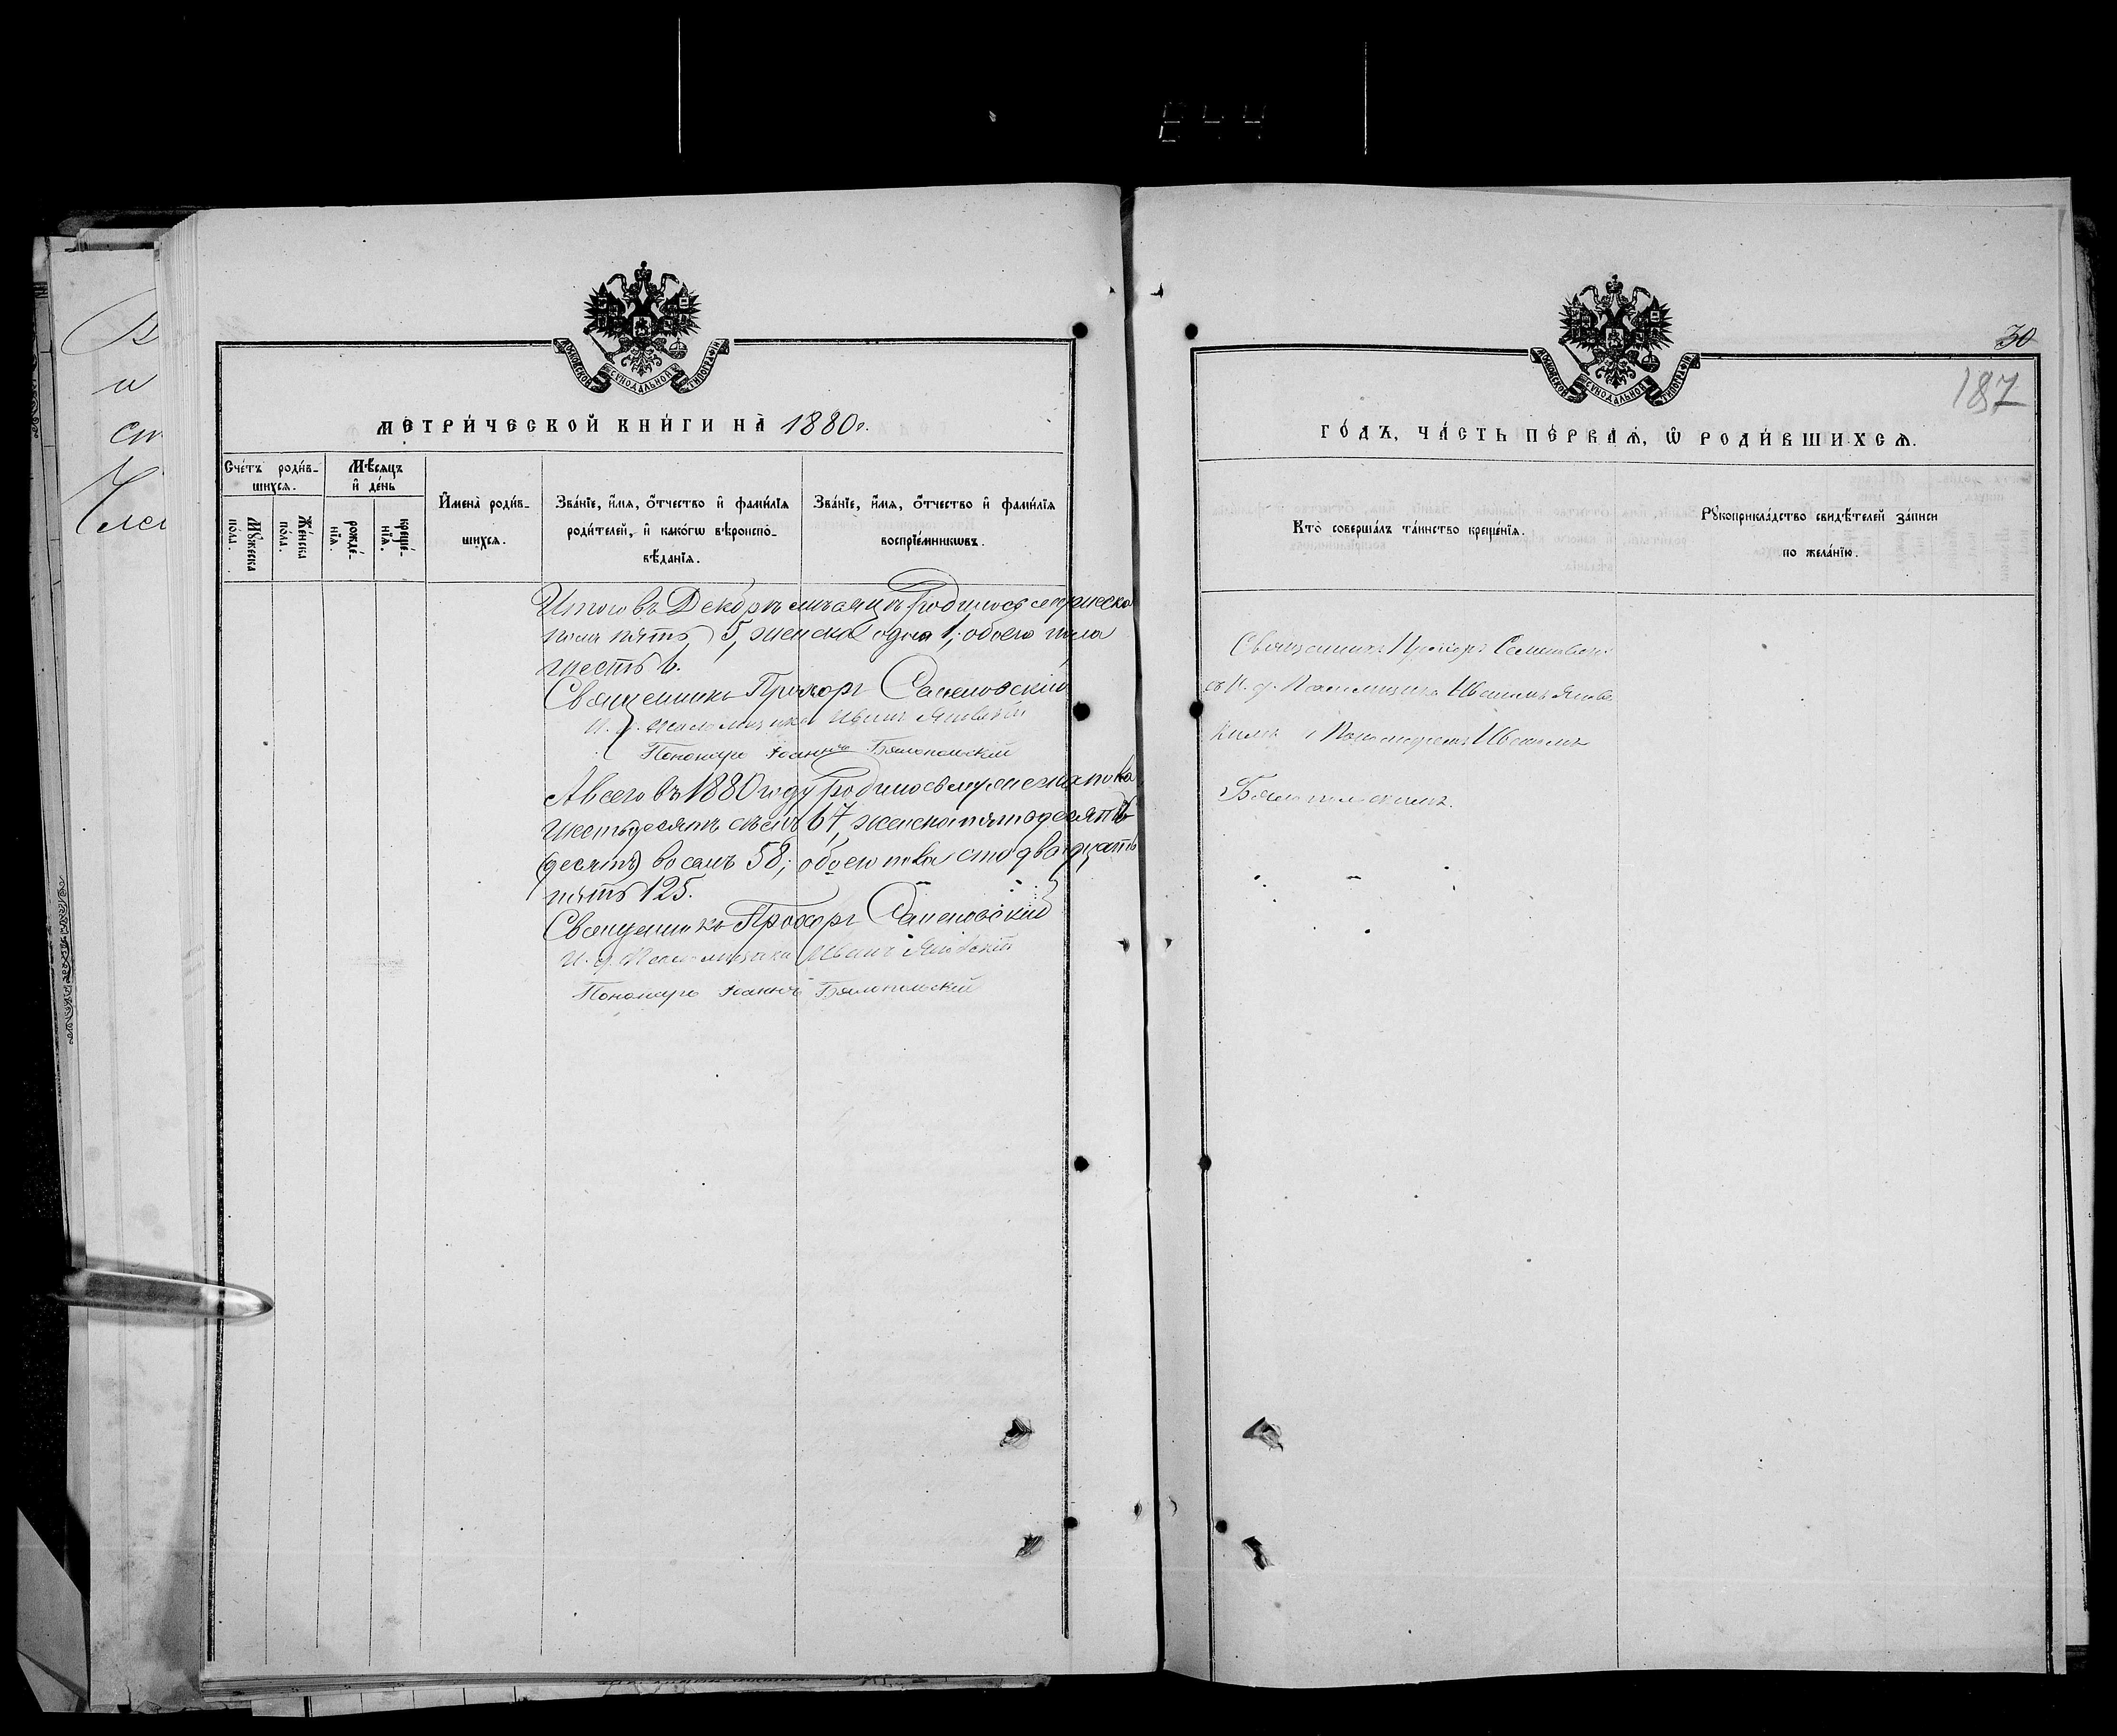 МОСКОВСКОЙ СУНОДАЛЬНОЙ ТИПОГРАФІИ
МЕТРИ́ЧЕСКОЙ КНИ́ГИ НА̀ 1880 г.
Сче́тъ роди́в-
шихсѧ.
Мѣ́сѧцъ
и҆ де́нь
Мꙋ́жеска
по́лꙋ.
Же́нска
по́лꙋ.
рожде́-
нїѧ.
креще́-
нїѧ.
И҆мена̀ роди́в-
шихсѧ.
Зва́нїе, и҆́мѧ, ѻ҆́тчество и҆ фами́лїѧ
роди́телей, и҆ како́гѡ вѣроиспо-
вѣ́данїѧ.
Зва́нїе, и҆́мѧ, ѻ҆́тчество и҆ фами́лїѧ
воспрїе́мникѡвъ.
Итого въ Декбрѣ мѣсяцѣ родилось мужеска
пола пять 5, женска одна 1, обоего пола
шесть 6.
Священникъ Прохоръ
И. д. Псаломщика Иванъ
Пономарь Іоаннъ Бялопольскій
А всего въ 1880 году родилось мужеска пола
шестьдесятъ семь 67, женска пятьдесятъ
(десятъ) восемь 58; обоего пола сто двадцать
пять 125.
Священникъ Прохоръ
И. д. Псаломщика Иванъ
Пономарь Іоаннъ Бялопольскій
МОСКОВСКОЙ СУНОДАЛЬНОЙ ТИПОГРАФІИ
30
187
ГО́ДЪ, ЧА́СТЬ ПЕ́РВАѦ, Ѡ҆ РОДИ́ВШИХСѦ.
Кто̀ соверша́лъ та́инство креще́нїѧ.
Рꙋкоприкла́дство свидѣ́телей за́писи
по жела́нїю.
Священникъ Прохоръ
съ И. д. Псаломщика Иваномъ
кимъ и Пономаремъ Иваномъ
Бялопольскимъ.